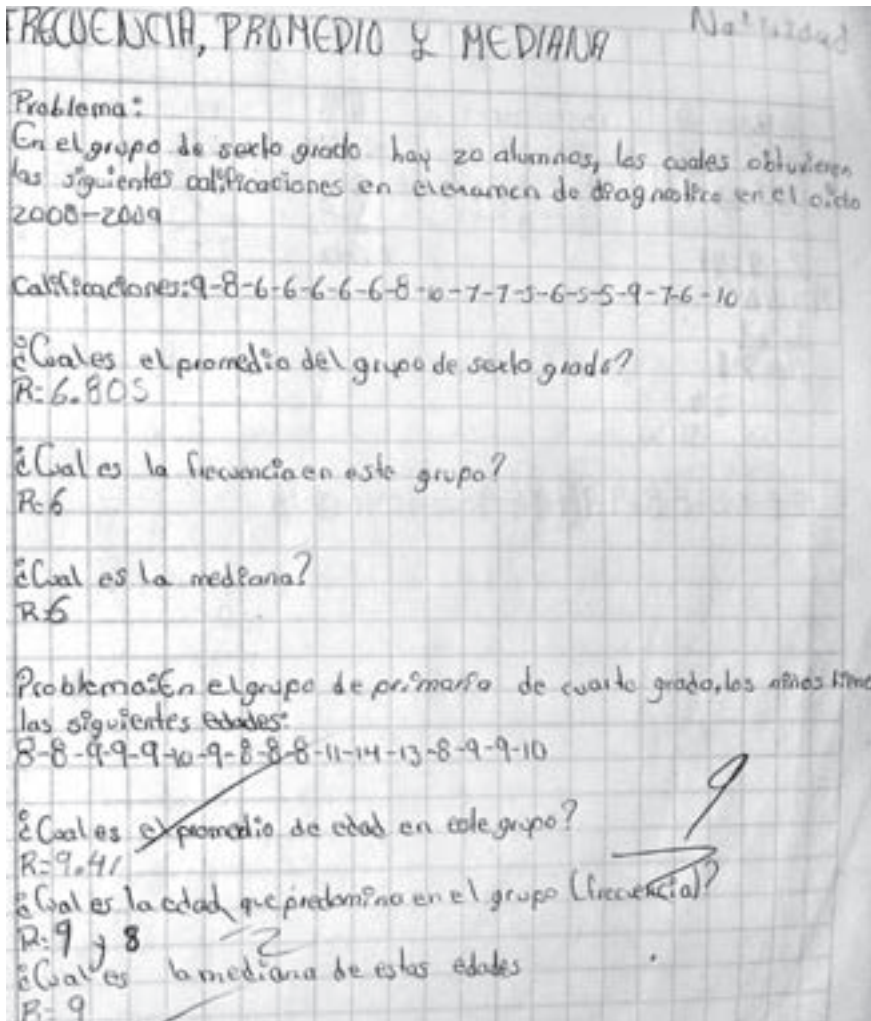 FRECUENCIA, PROMEDIO Y MEDIANA
Problema:
En el grupo de sexto grado hay 20 alumnos, los cuales obtuvieron
las siguientes calificaciones en el examen de diagnostico en el ciclo
2008-2009
Calificaciones: 9-8-6-6-6-6-6-8-10-7-7-5-6-5-5-9-7-6-10
¿Cual es el promedio del grupo de sexto grado?
R=6.805
¿Cual es la frecuencia en este grupo?
R=6
¿Cual es la mediana?
R=6
Problema: En el grupo de primaria de cuarto grado, los niños
las siguientes edades:
8-8-9-9-9-10-9-8-8-8-11-14-13-8-9-9-10
¿Cual es el promedio de edad en este grupo?
R=9.41
¿Cual es la edad que predomina en el grupo (frecuencia)?
R=9 y 8
¿Cual es la mediana de estas edades
R=9
9